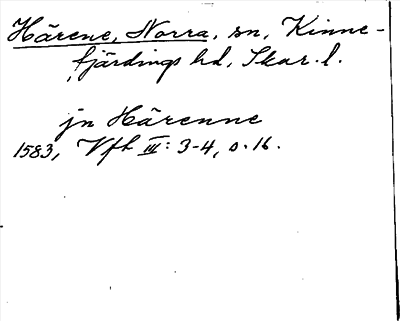 Härene, Norra, sn, Kinne-
fjärdings hd, Skar. l.
jn Härenne
1583, Vfh III: 3-4, s. 16.